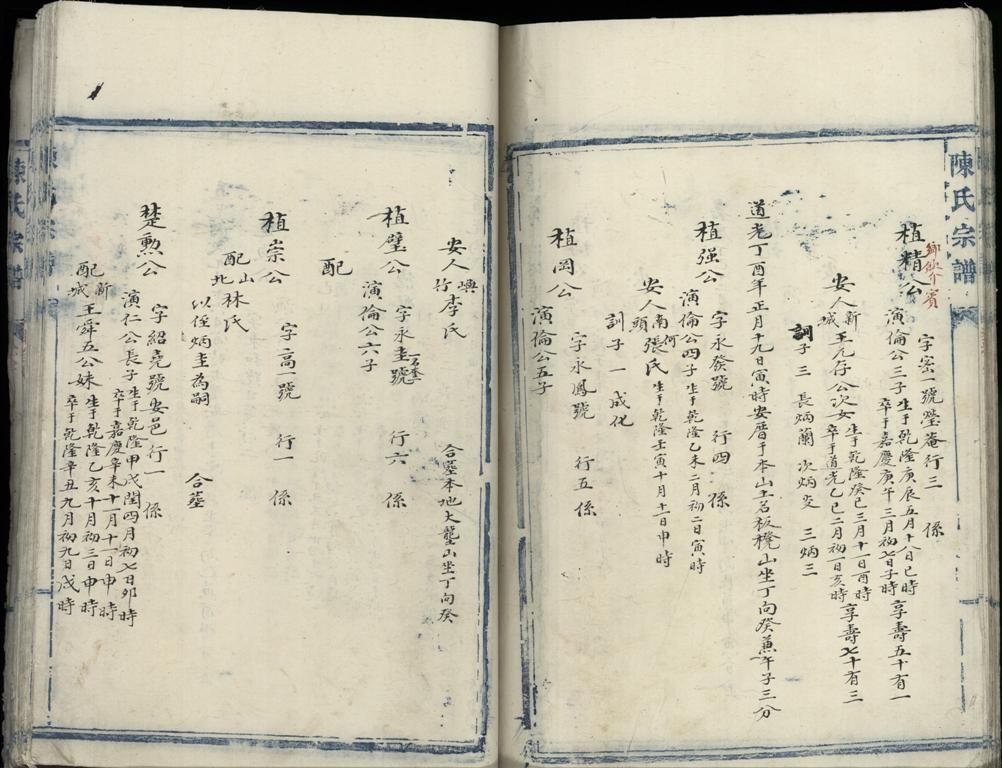 陳氏宗譜
鄉飲介賓
植精公 字密一號瑩菴行三 係
演倫公三子 生于乾隆庚辰五月十八日巳時 享壽五十有一
卒于嘉慶庚午三月初七日子時
安人新城王元仔公次女 生于乾隆癸巳三月十一日酉時 享壽七十有三
卒于道光乙巳二月初一日亥時
訓子三 長炳蘭 次炳炎 三炳三
道光丁酉年正月十九日寅時安厝于本山土名板櫈山坐丁向癸兼午子三分
植强公 字永發號 行四 係
演倫公四子 生于乾隆乙未二月初二日寅時
安人南何頭張氏 生于乾隆壬寅十月十一日申時
訓子一 成化
植岡公 字永鳳號 行五 係
演倫公五子
安人嶼竹李氏 合墓本地大壟山坐丁向癸
植璧公 字永圭號 行六 係
演倫公六子
配
植崇公 字一高號 行一 係
配山北林氏
以侄炳圭為嗣 合墓
楚勳公 字紹堯號安邑 行一 係
演仁公長子 生于乾隆甲戌閏四月初七日卯時
卒于嘉慶辛未十一月十一日申時
配新城王舜五公妹 生于乾隆乙亥十月初三日申時
卒于乾隆辛丑九月初九日戌時
陳氏宗譜